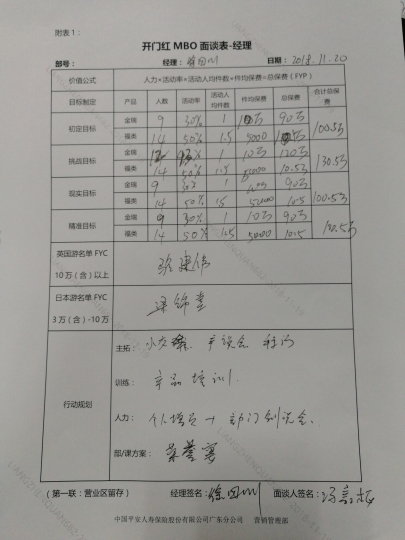 附表1：
开门红 MBO 面谈表-经理
部号： 经理：徐国川 日期：2018.11.20
价值公式 人力×活动率×活动人均件数×件均保费=总保费（FYP）
目标制定 产品 人数 活动率 活动人均件数 件均保费 总保费 合计总保费
初定目标 金瑞 9 30% 1 10万 90万 100.5万
福类 14 50% 1.5 5000 10.5万
挑战目标 金瑞 1 10万 120万 130.5万
福类 14 50% 1.5 5000 10.5万
现实目标 金瑞 9 30% 1 90万 100.5万
福类 14 50% 1.5 5000 10.5
精准目标 金瑞 9 30% 1 10万 90万
福类 14 50% 1.5 5000 10.5
英国游名单 FYC
10 万（含）以上
日本游名单 FYC
3 万（含）-10 万
梁锦堂
行动规划
主拓： 产说会
训练： 产品培训.
人力： 个人增员 → 部门创说会.
部/课方案：
（第一联：营业区留存） 经理签名：徐国川 面谈人签名：
中国平安人寿保险股份有限公司广东分公司 营销管理部